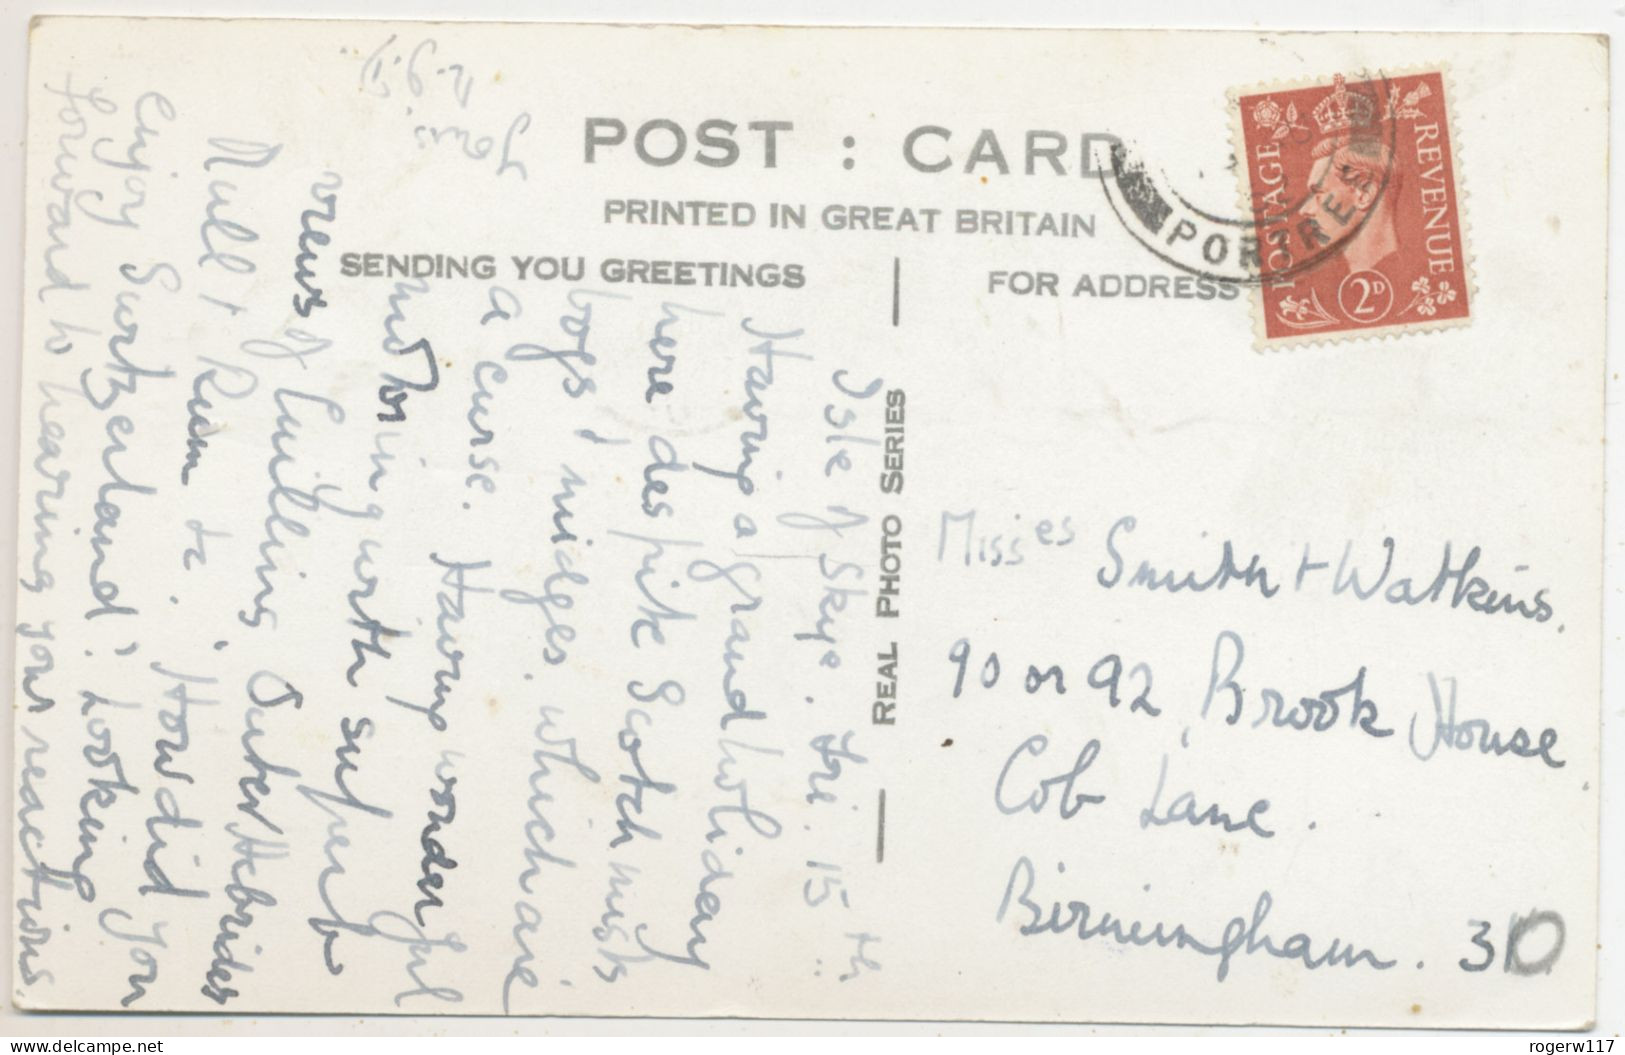 POST : CARD
PRINTED IN GREAT BRITAIN
SENDING YOU GREETINGS
FOR ADDRESS
REAL PHOTO SERIES
POSTAGE
REVENUE
2D
PORTREE
Isle of Skye. Fri. 15th
Having a grand holiday
here despite Scotch mists
bogs & midges which are
a curse. Having wonderful
motoring with superb
views of Cuillins Outer Hebrides
Mull + Rum etc. How did you
enjoy Switzerland? Looking
forward to hearing your reactions.
Misses Smith + Watkins.
90 or 92, Brook House
Cob Lane.
Birmingham. 30
rogerw117